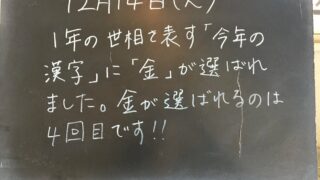 12月14日(火)
1年の世相で表す「今年の
漢字」に「金」が選ばれ
ました。金が選ばれるのは
4回目です!!